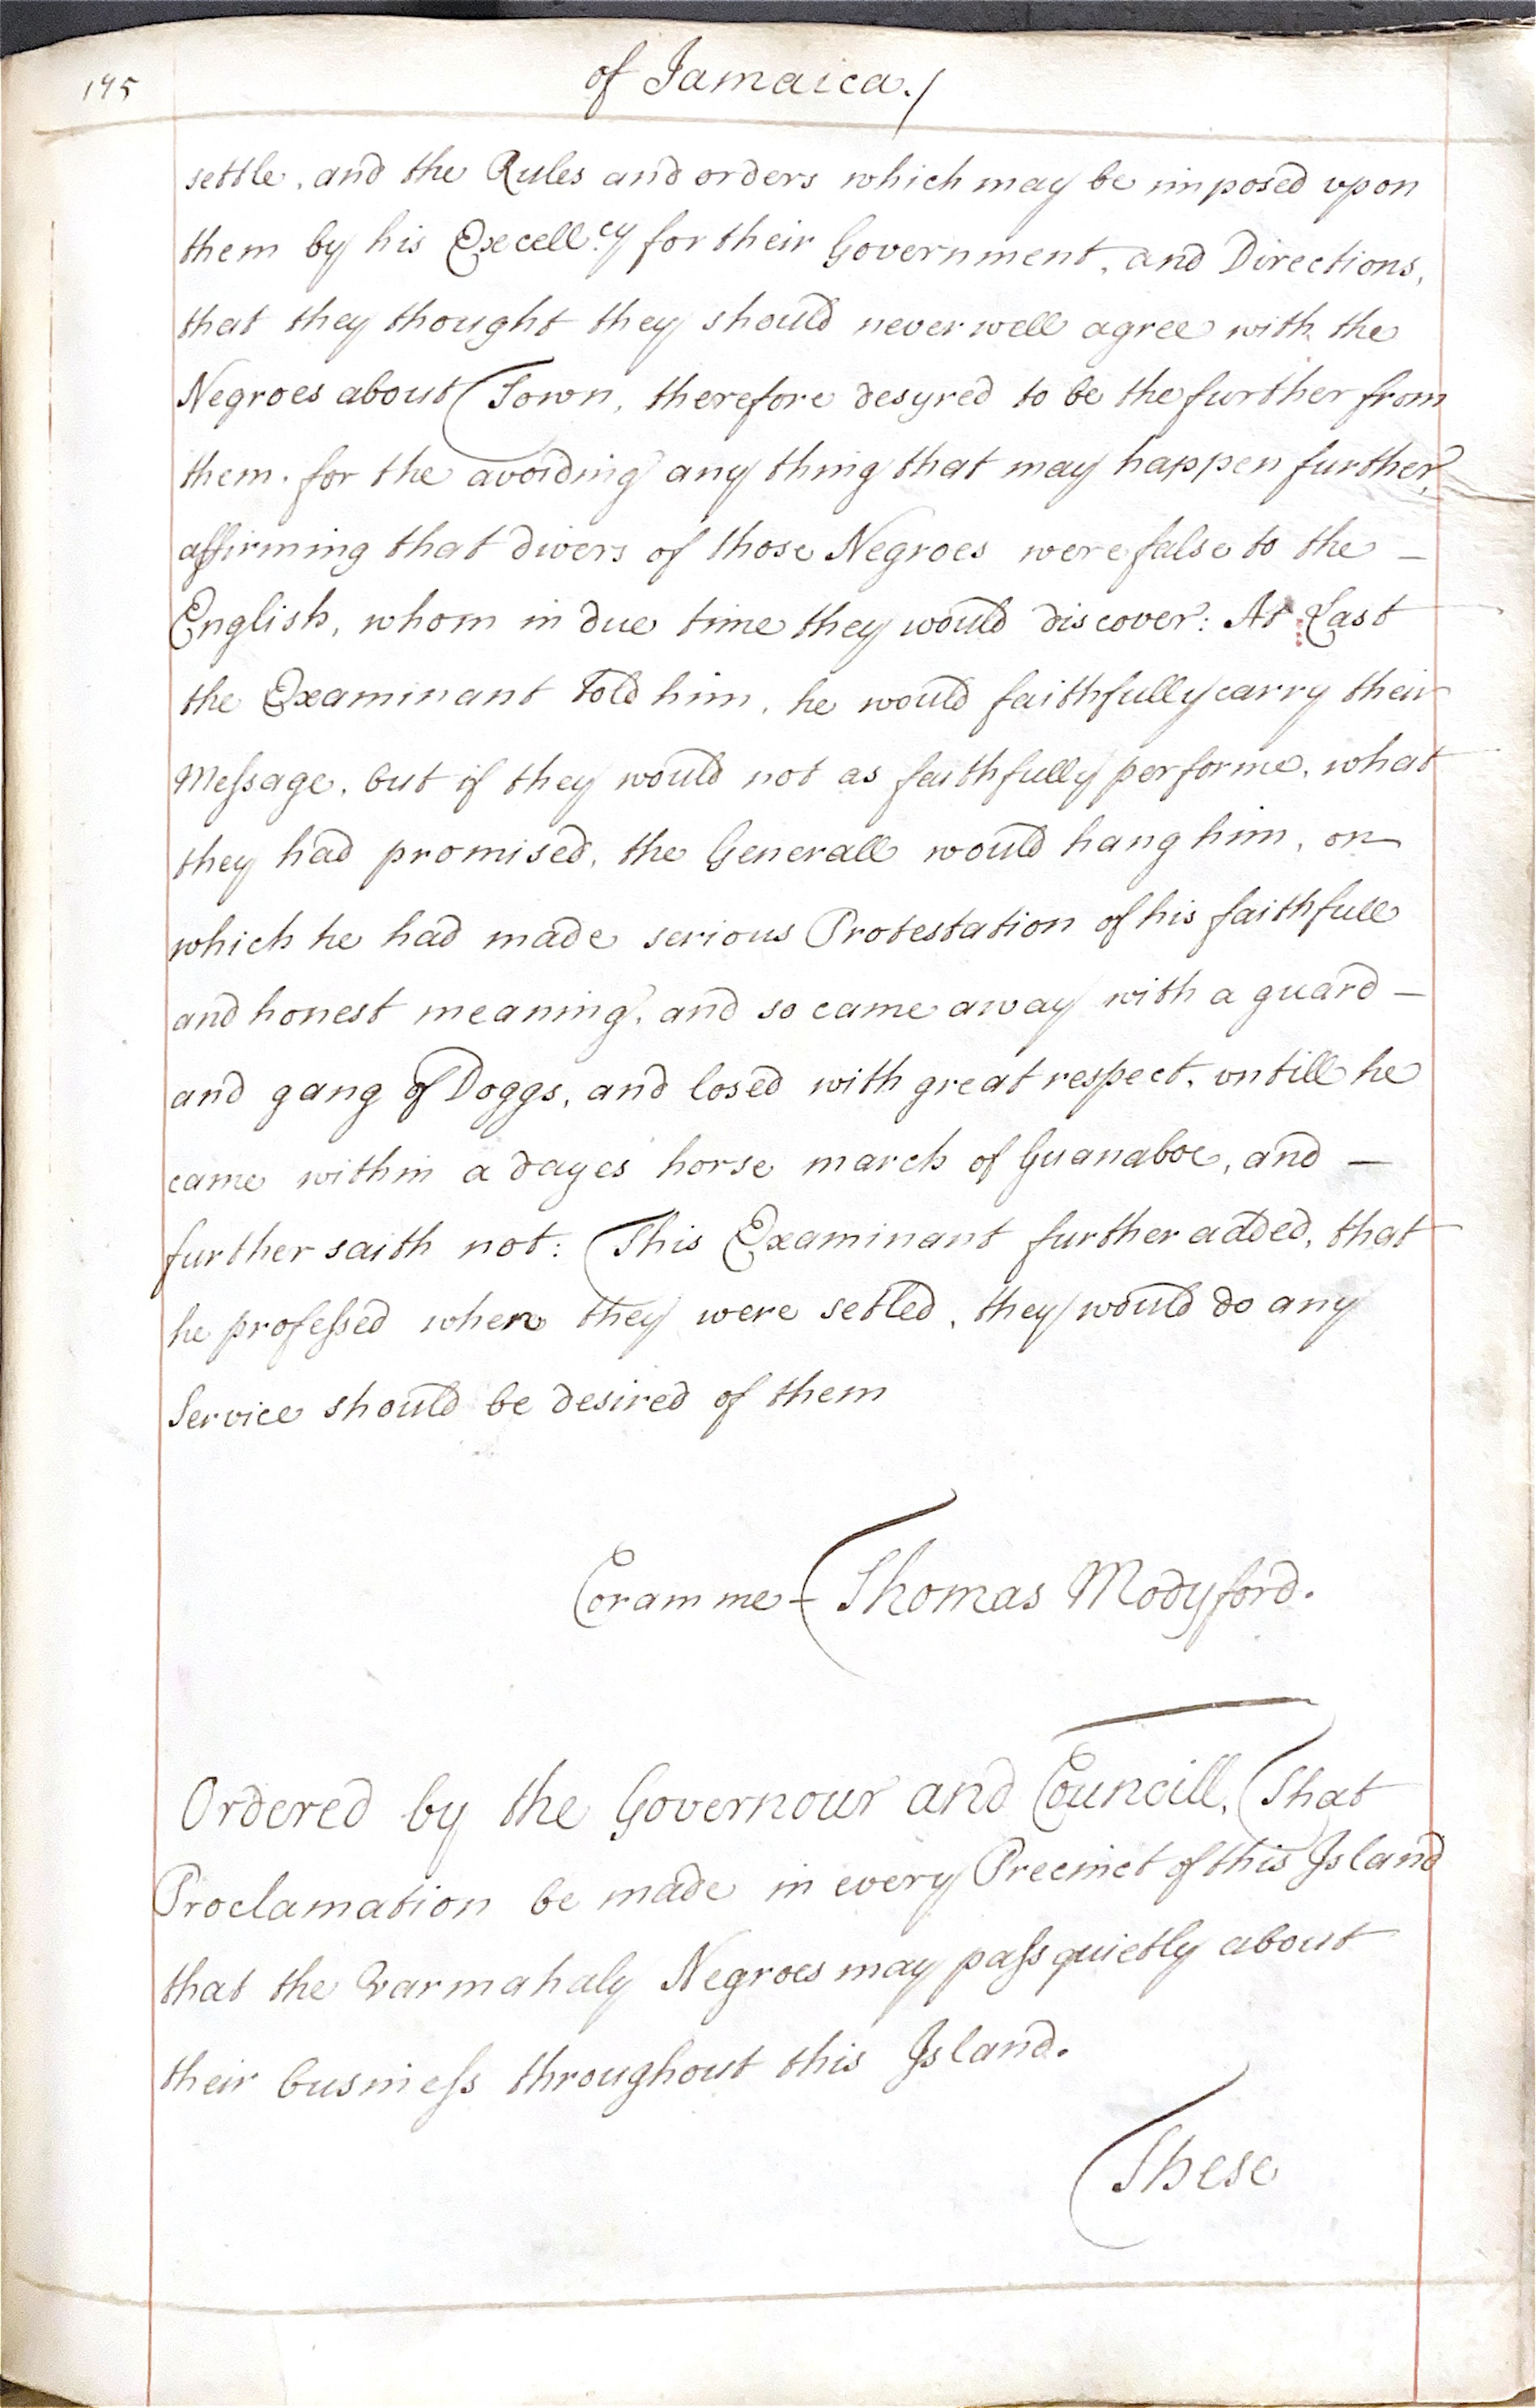 195
of Jamaica./
settle, and the Rules and orders which may be imposed upon
them by his Excell.cy for their Government, and Directions,
that they thought they should never well agree with the
Negroes about Town, therefore desyred to be the further from
them. for the avoiding any thing that may happen further,
affirming that divers of those Negroes were false to the –
English, whom in due time they would discover: At Last
the Examinant Told him, he would faithfully carry their
Message, but if they would not as faithfully performe, what
they had promised, the Generall would hang him, on
which he had made serious Protestation of his faithfull
and honest meaning, and so came away with a guard –
and gang of Doggs, and losed with great respect, untill he
came within a dayes horse march of Guanaboe, and –
further saith not: This Examinant further added, that
he professed when they were setled, they would do any
Service should be desired of them
Coram me – Thomas Modyford.
Ordered by the Governour and Councill, That
Proclamation be made in every Precinct of this Island
that the Varmahaly Negroes may pass quietly about
their business throughout this Island.
These